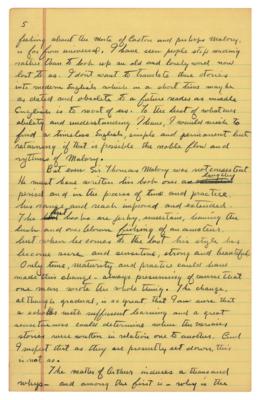 5
feeling about the work of Caxton and perhaps Malory,
is far from universal. I have seen people stop reading
rather than to look up an old and lovely word now
lost to us. I don't want to translate these stories
into modern English which in a short time may be
as dated and obsolete to a future reader as middle
English is to most of us. To the best of what
ability and understanding I have, I would wish to
find a timeless English, simple and permanent but
retaining if that is possible the noble flow and
rythms of Malory.
But even Sir Thomas Malory was not consistent
He must have written this book over a lengthy
period and in the process of time and practice
his range and reach enjoined and extended.
The first books are jerky, uncertain, having the
and one blown of an amateur.
but when he comes to the last his style has
become sure and sensitive, strong and beautiful
Only time, maturity and practice could have
made this change - always presuming of course that
one man wrote the whole thing. The change,
although gradual, is so great that I am sure that
a scholar with sufficient learning and a great
sensitiveness could determine when the various
stories were written in relation one to another. And
I suspect that as they are presently set down, this
is not so.
The matter of Arthur induces a thousand
whys - and among the first is - why is the